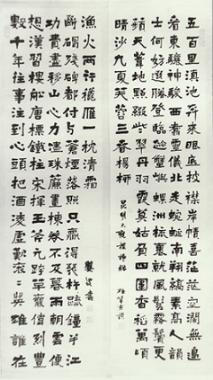 五百里滇池奔來眼底披襟岸幘喜茫茫空闊無邊
看東驤神駿西翥靈儀北走蜿蜒南翔縞素高人韻
士何妨選勝登臨趁蟹嶼螺洲梳裹就風鬟霧鬢更
蘋天葦地點綴些翠羽丹霞莫孤負四圍香稻萬頃
晴沙九夏芙蓉三春楊柳
昆明大觀樓
數千年往事注到心頭把酒凌虛歎滾滾英雄誰在
想漢習樓船唐標鐵柱宋揮玉斧元跨革囊偉烈豐
功費盡移山心力儘珠簾畫棟卷不及暮雨朝雲便
斷碣殘碑都付與蒼煙落照只贏得幾杵疏鐘半江
漁火兩行秋雁一枕清霜